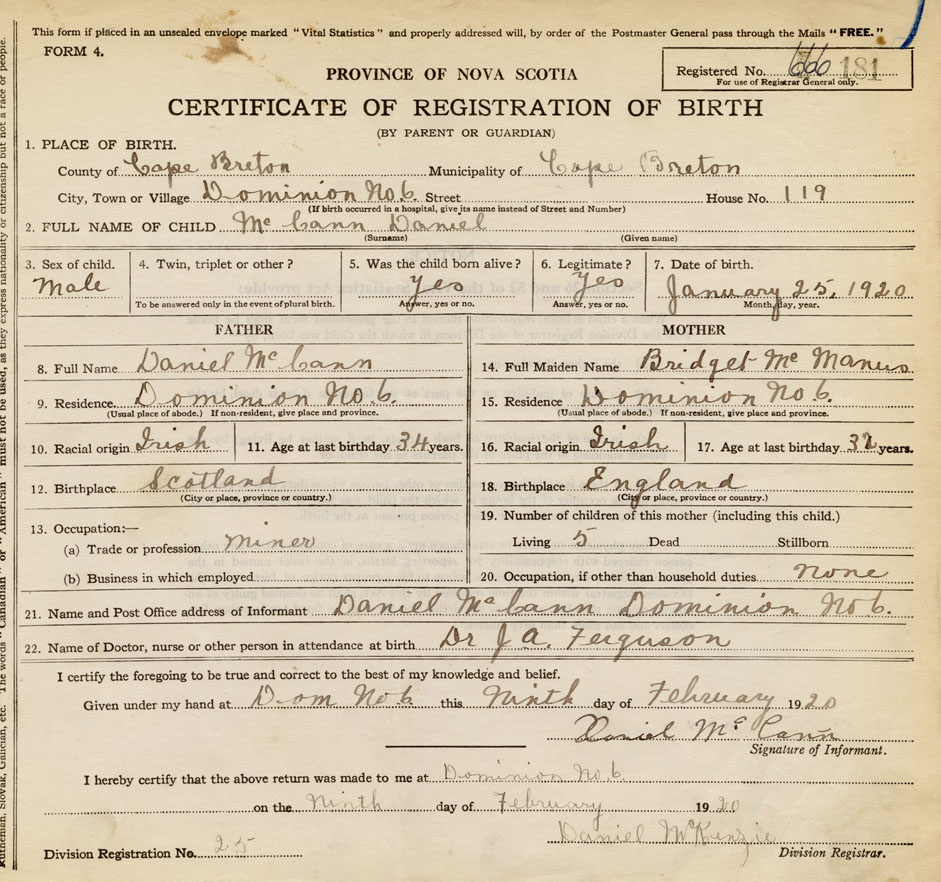 This form if placed in an unsealed envelope marked "Vital Statistics" and properly addressed will, by order of the Postmaster General pass through the Mails "FREE."
FORM 4.
Registered No. 666 181
For use of Registrar General only.
PROVINCE OF NOVA SCOTIA
CERTIFICATE OF REGISTRATION OF BIRTH
(BY PARENT OR GUARDIAN)
1. PLACE OF BIRTH.
County of Cape Breton Municipality of Cape Breton
City, Town or Village Dominion No 6. Street House No. 119
(If birth occurred in a hospital, give its name instead of Street and Number)
2. FULL NAME OF CHILD Mc Cann Daniel
(Surname) (Given name)
3. Sex of child. 4. Twin, triplet or other? 5. Was the child born alive? 6. Legitimate? 7. Date of birth.
Male Yes Yes January 25, 1920
To be answered only in the event of plural birth. Answer, yes or no. Answer, yes or no. Month, day, year.
FATHER MOTHER
8. Full Name Daniel Mc Cann 14. Full Maiden Name Bridget Mc Manus
9. Residence. Dominion No. 6. 15. Residence Dominion No 6.
(Usual place of abode.) If non-resident, give place and province. (Usual place of abode.) If non-resident, give place and province.
10. Racial origin Irish 11. Age at last birthday 34 years. 16. Racial origin Irish 17. Age at last birthday 32 years.
12. Birthplace Scotland 18. Birthplace England
(City or place, province or country.) (City or place, province or country.)
13. Occupation:— 19. Number of children of this mother (including this child.)
(a) Trade or profession miner Living 5 Dead Stillborn
(b) Business in which employed 20. Occupation, if other than household duties none
21. Name and Post Office address of Informant Daniel Mc Cann Dominion No 6.
22. Name of Doctor, nurse or other person in attendance at birth Dr J. A. Ferguson
I certify the foregoing to be true and correct to the best of my knowledge and belief.
Given under my hand at Dom No 6. this Ninth day of February 1920
Daniel Mc Cann
Signature of Informant.
I hereby certify that the above return was made to me at Dominion No 6
on the Ninth day of February 1920
Daniel McKenzie
Division Registration No. 25 Division Registrar.
Ruthenian, Slovak, Galician, etc. The words "Canadian" or "American" must not be used, as they express nationality or citizenship but not a race or people.